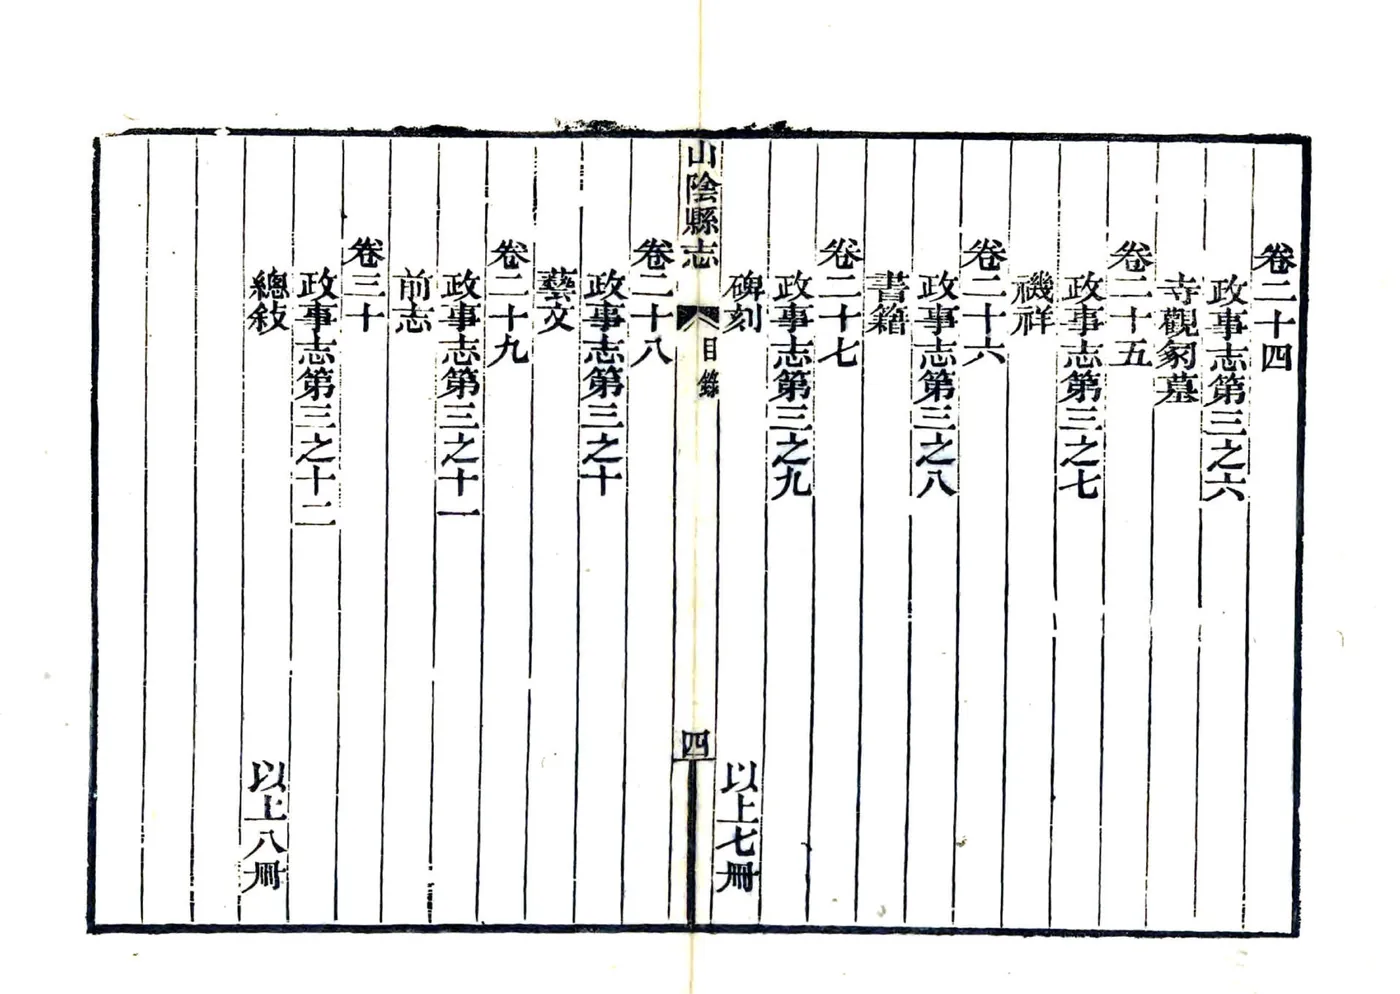 卷二十四
政事志第三之六
寺觀冢墓
卷二十五
政事志第三之七
禨祥
卷二十六
政事志第三之八
書籍
卷二十七
政事志第三之九
碑刻
以上七冊
山陰縣志
目錄
四
卷二十八
政事志第三之十
藝文
卷二十九
政事志第三之十一
前志
卷三十
政事志第三之十二
總敍
以上八冊